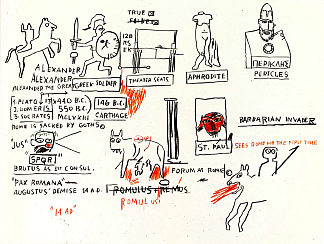 TRUE
ALEXANDER
ALEXANDER
ALEXANDER THE GREAT
GREEK SOLDIER
THEATER SEATS
APHRODITE
ΠΕΡΙΚΛΗΣ
PERICLES
1. PLATO
440 B.C.
2. HOMER IS 550 B.C.
3. SOCRATES MCLVXIII
146 B.C.
CARTHAGE
ROME IS SACKED BY GOTHS
"JUS"
SPQR
BRUTUS AS 1ST CONSUL.
"PAX ROMANA"
AUGUSTUS' DEMISE 14 A.D.
"14 AD"
ROMULUS + REMUS
ROMULUS
FORUM AT ROME
ST. PAUL
BARBARIAN INVADER
SEES ROME FOR THE FIRST TIME